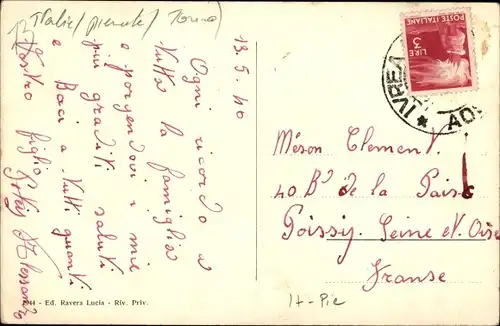 Italie / piemonte / Torino)
13.5.40
Ogni ricordo a
tutta la famiglia
e porgendovi i mie
piu graditi saluti
e Baci a tutti quanti
Vostro figlio
POSTE ITALIANE
LIRE 3
* IVREA
AOS
Méson Clement
40 Bd de la Paise
Poissiy. Seine et. Oise
Franse
It - Pie
44 - Ed. Ravera Lucia - Riv. Priv.